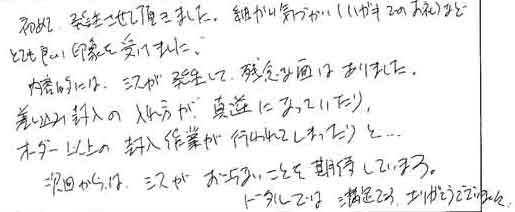 初めて、発注させて頂きました。細かい気づかい(ハガキでのお礼)など
とても良い印象を受けました。
内容的には、ミスが発生して、残念な面はありました。
差し込み封入の入れ方が、真逆になっていたり、
オーダー以上の封入作業が行われてしまったりと…
次回からは、ミスがおこらないことを期待しています。
トータルでは満足です。ありがとうございました。